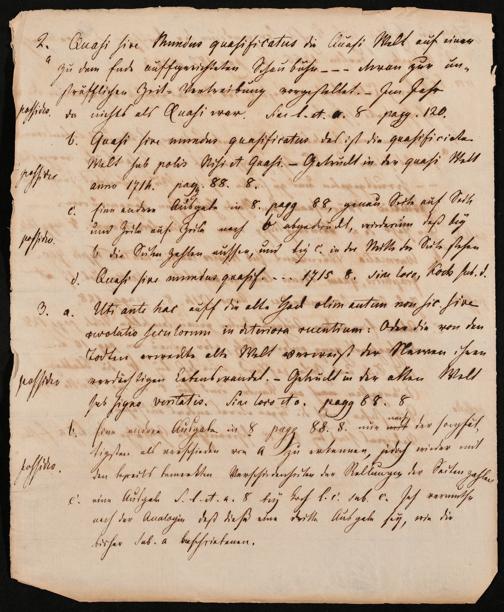 2. Quasi sive Mundus quasificatus die Quasi Welt auf einer
a zu dem Ende auffgerichteten Schaubühn --- Man zur un-
sträfflichen Zeit-Vertreibung vorgestellt. - Im Jahr
possideo. da nichts als Quasi war. Sine l. et a. 8 pagg. 120.
b. Quasi sive mundus quasificatus das ist die quasificirte
possideo Welt sub polis Nisi et Quasi. - Gedruckt in der quasi Welt
anno 1714. pagg. 88. 8.
c. Eine andere Ausgabe in 8. pagg 88. genau Seite auf Seite
possideo. und Zeile auf Zeile nach b abgedruckt, wiederum daß bey
b die Seiten Zahlen aussen, und bey c. in der Mitte der Seite stehen
d. Quasi sive mundus quasif. --- 1715 8. sine loco, Koch sub. d.
3. a. Uti ante hac auff die alte Had olim autem non sic sive
revolutio seculorum in deteriora ruentium: Oder die von den
Todten erweckte alte Welt verweist der Neuen ihren
possideo verdächtigen Lebenswandel. - Gedruckt in der alten Welt
sub signo veritatis. Sine loco et a. pagg 88. 8
b. Eine andere Ausgabe in 8 pagg 88. 8. nur mit der sorgfäl-
tigsten als verschieden von a zu erkennen, jedoch wieder mit
possideo. den bereits bemerkten Verschiedenheiten der Stellungen der Seiten zahlen
c. eine Ausgabe s. l. et. a. 8 bey Koch l. c. sub c. Ich vermuthe
nach der Analogie daß diese eine dritte Ausgabe sey, wie die
bisher sub. a beschriebenen.